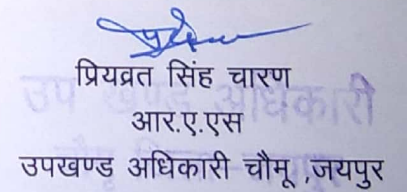 प्रियव्रत सिंह चारण
आर.ए.एस
उपखण्ड अधिकारी चौमू ,जयपुर